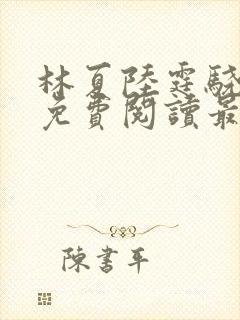 林夏陸霆驍
免費閱讀最
陳書平